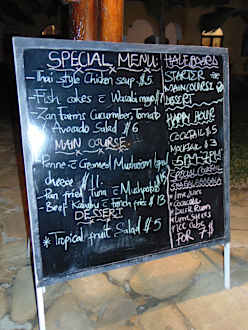 SPECIAL MENU
-Thai style Chicken soup $5
-Fish cakes & Wasabi mayo
-Zan farms Cucumber, Tomato
& Avocado Salad $6
MAIN COURSE
-Penne & Creamed Mushroom
cheese $11
-Pan fried Tuna &
-Beef & french fries $13
DESSERT
*Tropical fruit Salad $5
HALF BOARD
STARTER
MAIN COURSE
DESSERT
HAPPY HOUR
COCKTAIL $5
MOCKTAIL $3
SPECIAL COCKTAIL
*Dark Rum
*Lime
*ICE CUBES
FOR 7$